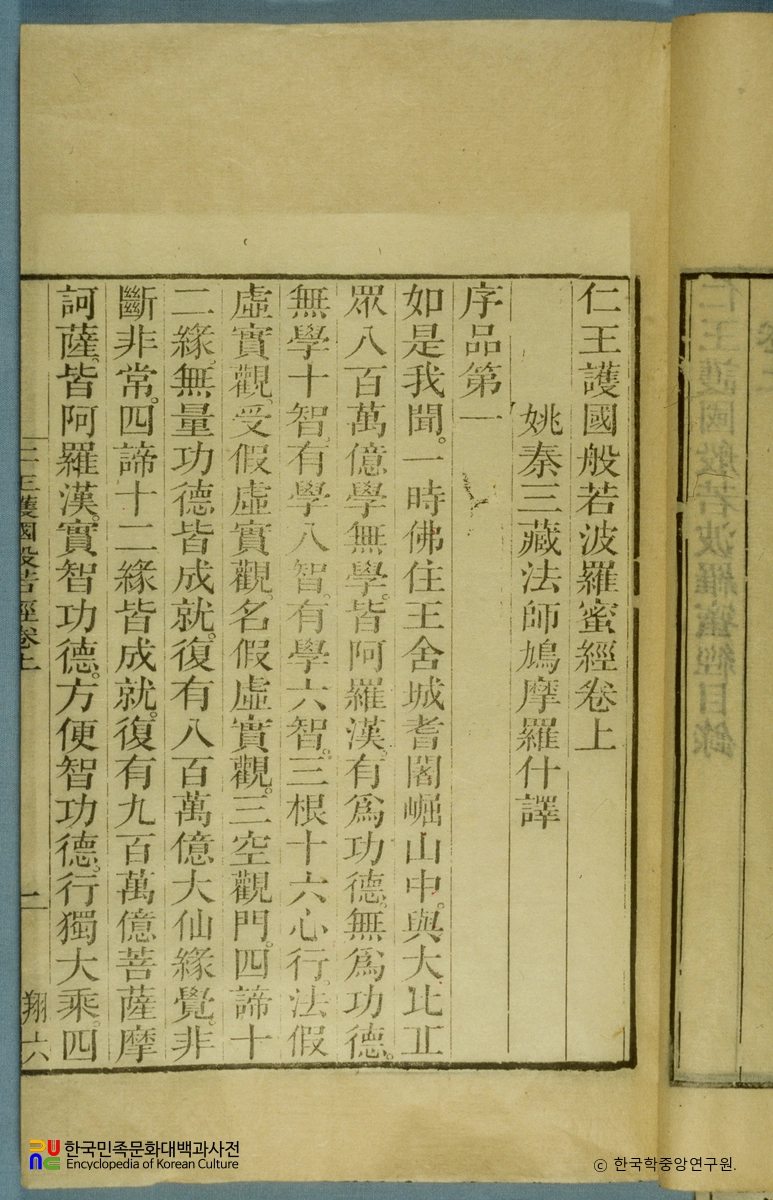 仁王護國般若波羅蜜經卷上
姚秦三藏法師鳩摩羅什譯
序品第一
如是我聞。一時佛住王舍城耆闍崛山中。與大比丘
眾八百萬億學無學。皆阿羅漢。有爲功德。無爲功德。
無學十智。有學八智。有學六智。三根十六心行。法假
虛實觀。受假虛實觀。名假虛實觀。三空觀門。四諦十
二緣。無量功德皆成就。復有八百萬億大仙緣覺。非
斷非常。四諦十二緣皆成就。復有九百萬億菩薩摩
訶薩。皆阿羅漢。實智功德。方便智功德。行獨大乘。四
王護國般若經卷上 二 翔六
한국민족문화대백과사전
Encyclopedia of Korean Culture
© 한국학중앙연구원.